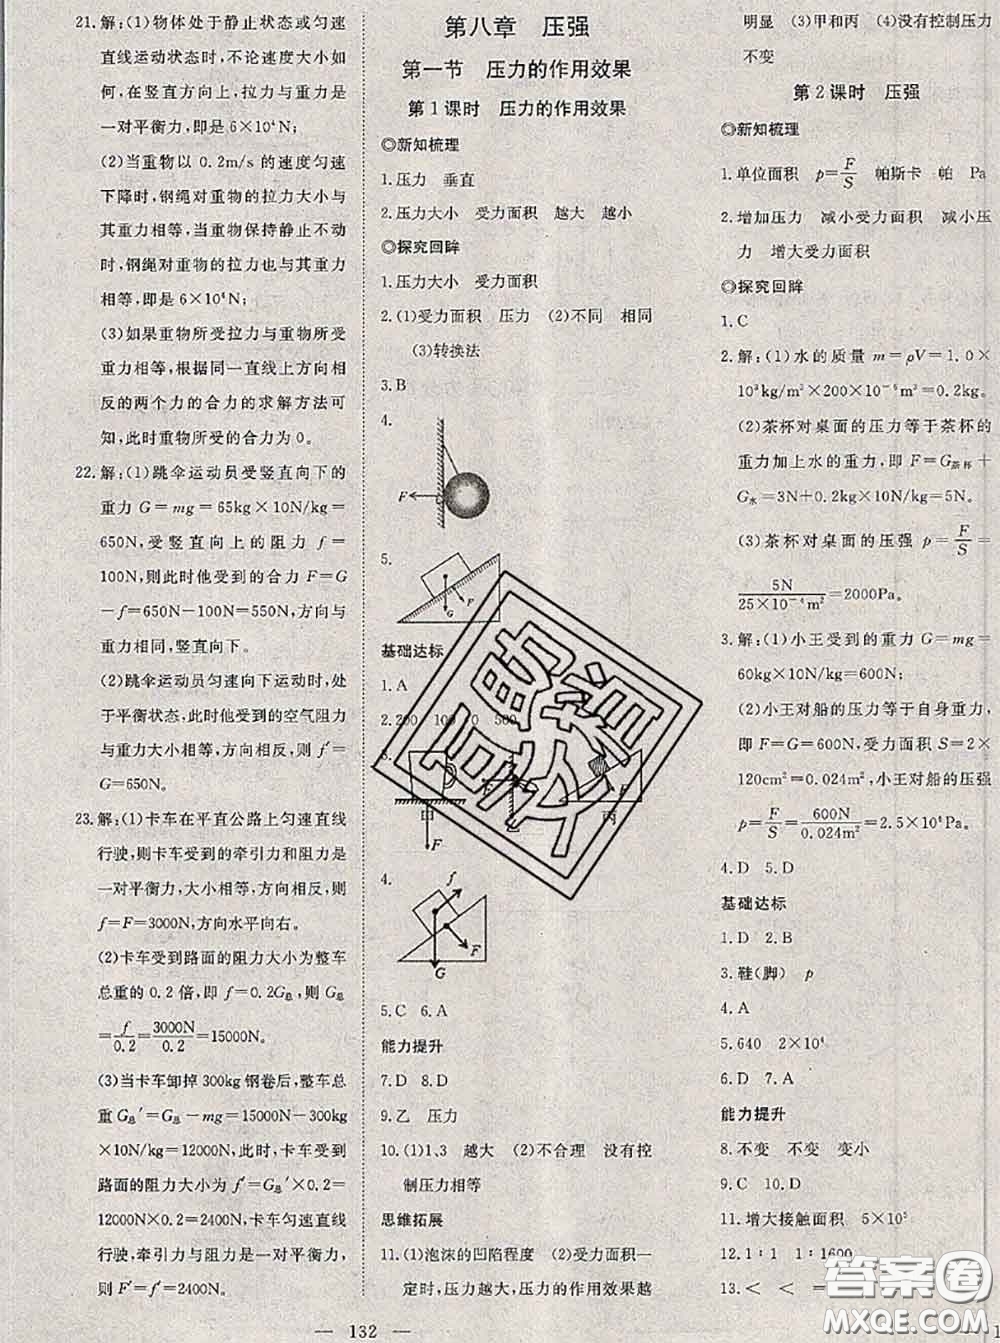 21.解:(1)物体处于静止状态或匀速
直线运动状态时,不论速度大小如
何,在竖直方向上,拉力与重力是
一对平衡力,即是6×10⁴N;
(2)当重物以0.2m/s的速度匀速
下降时,钢绳对重物的拉力大小与
重力相等,当重物保持静止不动
时,钢绳对重物的拉力也与其重力
相等,即是6×10⁴N;
(3)如果重物所受拉力与重物所受
重力相等,根据同一直线上方向相
反的两个力的合力的求解方法可
知,此时重物所受的合力为0。
22.解:(1)跳伞运动员受竖直向下的
重力G=mg=65kg×10N/kg=
650N,受竖直向上的阻力f=
100N,则此时他受到的合力F=G
-f=650N-100N=550N,方向与
重力相同,竖直向下。
(2)跳伞运动员匀速向下运动时,处
于平衡状态,此时他受到的空气阻力
与重力大小相等,方向相反,即f′=
G=650N。
23.解:(1)卡车在平直公路上匀速直线
行驶,则卡车受到的牵引力和阻力是
一对平衡力,大小相等,方向相反,则
f=F=3000N,方向水平向右。
(2)卡车受到路面的阻力大小为整车
总重的0.2倍,即f=0.2G总,则G总
=f/0.2=3000N/0.2=15000N。
(3)当卡车卸掉300kg钢卷后,整车总
重G总′=G总-mg=15000N-300kg
×10N/kg=12000N;此时,卡车受到
路面的阻力大小为f′=G总′×0.2=
12000N×0.2=2400N,卡车匀速直线
行驶,牵引力与阻力是一对平衡力,
则F′=f′=2400N。
第八章 压强
第一节 压力的作用效果
第1课时 压力的作用效果
◎新知梳理
1.压力 垂直
2.压力大小 受力面积 越大 越小
◎探究回眸
1.压力大小 受力面积
2.(1)受力面积 压力 (2)不同 相同
(3)转换法
3.B
4.
F
5.
G F
基础达标
1.A
2.200 100 0 500
3.
甲 乙 丙
F
4.
f
F
G
5.C 6.A
能力提升
7.D 8.D
9.乙 压力
10.(1)1、3 越大 (2)不合理 没有控
制压力相等
思维拓展
11.(1)泡沫的凹陷程度 (2)受力面积一
定时,压力越大,压力的作用效果越
明显 (3)甲和丙 (4)没有控制压力
不变
第2课时 压强
◎新知梳理
1.单位面积 p=F/S 帕斯卡 帕 Pa
2.增加压力 减小受力面积 减小压
力 增大受力面积
◎探究回眸
1.C
2.解:(1)水的质量m=ρV=1.0×
10³kg/m³×200×10⁻⁶m³=0.2kg。
(2)茶杯对桌面的压力等于茶杯的
重力加上水的重力,即F=G茶杯+
G水=3N+0.2kg×10N/kg=5N。
(3)茶杯对桌面的压强 p=F/S=
5N/25×10⁻⁴m²=2000Pa。
3.解:(1)小王受到的重力G=mg=
60kg×10N/kg=600N;
(2)小王对船的压力等于自身重力,
即F=G=600N,受力面积S=2×
120cm²=0.024m²,小王对船的压强
p=F/S=600N/0.024m²=2.5×10⁴Pa。
4.D 5.D
基础达标
1.D 2.B
3.鞋(脚) p
4.A
5.640 2×10⁴
6.D 7.A
能力提升
8.不变 不变 变小
9.C 10.D
11.增大接触面积 5×10⁵
12.1∶1 1∶1600
13.< < =
— 132 —
答案圈
MXQE.COM